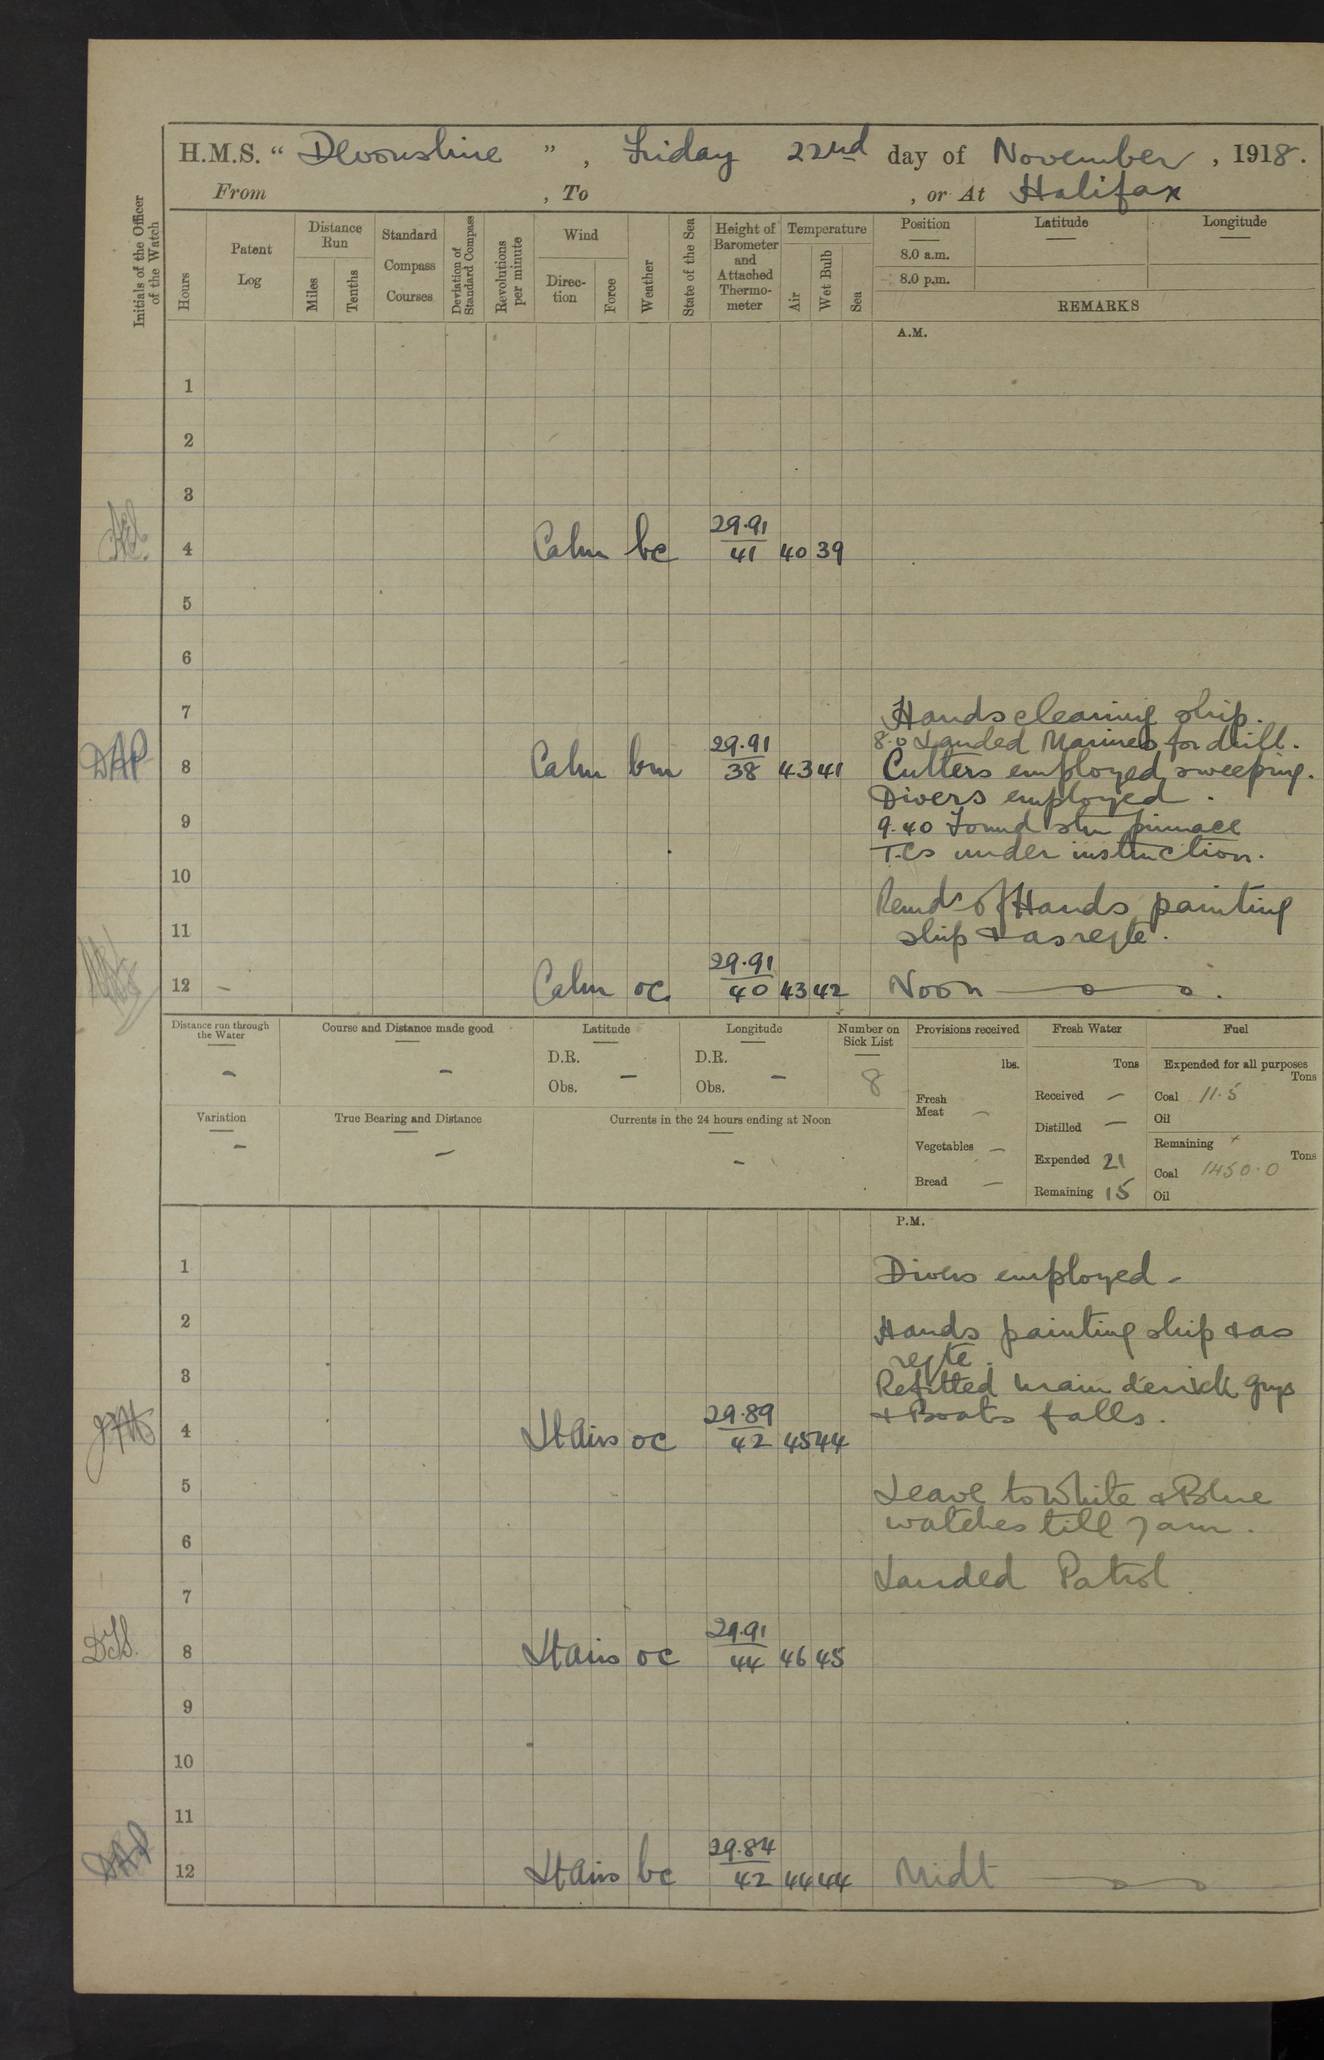 H.M.S. “ Devonshire ” , Friday 22nd day of November , 1918.
From , To , or At Halifax
Initials of the Officer of the Watch
Hours
Patent Log
Distance Run
Miles
Tenths
Standard Compass Courses
Deviation of Standard Compass
Revolutions per minute
Wind
Direc-tion
Force
Weather
State of the Sea
Height of Barometer and Attached Thermo-meter
Temperature
Air
Wet Bulb
Sea
Position
8.0 a.m.
8.0 p.m.
Latitude
Longitude
REMARKS
A.M.
1
2
3
4 Calm bc 29.91 / 41 40 39
5
6
7 Hands cleaning ship.
8.0 Landed Marines for drill.
DAP 8 Calm bm 29.91 / 38 43 41 Cutters employed sweeping.
Divers employed .
9 9.40 Found stm pinnace
T.Cs under instruction.
10
Remdr of Hands painting
11 ship & as reqte.
12 – Calm oc. 29.91 / 40 43 42 Noon
Distance run through the Water
–
Course and Distance made good
–
Latitude
D.R.
Obs. –
Longitude
D.R.
Obs. –
Number on Sick List
8
Variation
–
True Bearing and Distance
–
Currents in the 24 hours ending at Noon
–
Provisions received
lbs.
Fresh Meat –
Vegetables –
Bread –
Fresh Water
Tons
Received –
Distilled –
Expended 21
Remaining 15
Fuel
Expended for all purposes
Tons
Coal 11.5
Oil
Remaining
Tons
Coal 1450.0
Oil
P.M.
1 Divers employed –
2 Hands painting ship & as
reqte.
3 Refitted main derrick guys
& Boats falls.
4 Lt airs oc 29.89 / 42 45 44
5 Leave to White & Blue
watches till 7 am.
6
Landed Patrol.
7
8 Lt airs oc 29.91 / 44 46 45
9
10
11
DAP 12 Lt airs bc 29.84 / 42 44 44 Midt